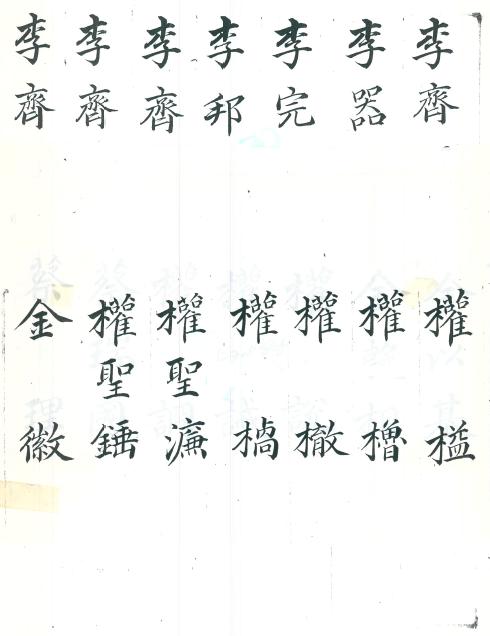 李齊
李器
李完
李邦
李齊
李齊
李齊
權榏
權櫓
權
權
權聖濂
權聖錘
金徽